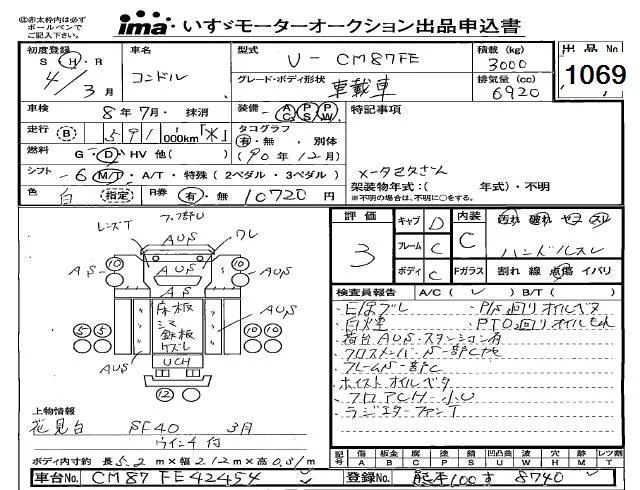 ㊟赤太枠内は必ず
ボールペンで
ご記入下さい。
ima いすゞモーターオークション出品申込書
初度登録 S・H・R 4/3月
車名 コンドル
型式 U-CM87FE
グレード・ボディ形状 車載車
積載 (kg) 3000
排気量 (cc) 6920
出品No 1069
車検 8年7月・抹消
装備 AC PS PW
特記事項
走行 B 591,000km「米」
タコグラフ 有・無・別体
(90年12月)
燃料 G・D・HV 他( )
シフト 6 M/T・A/T・特殊(2ペダル・3ペダル)
色 白 指定
R券 有・無 10720円
メータセズさん
架装物年式:( 年式)・不明
※不明の場合は、不明に○をする。
レンズT
ワレ
AUS
AUS
AS
AS
AS
AUS
AUS
10 10
5 5 10 10
12
床板
シマ
鉄板
クズレ
UCH
評価 3
キャブ D
フレーム C
ボディ C
内装 C
汚れ 破れ ヤコ スレ
ハンドルスレ
Fガラス 割れ 線 点傷 イバリ
検査員報告 A/C( ) B/T( )
・白煙
・P/S回りオイルベタ
・PTO回りオイルもれ
・荷台AUS・スタンション有
・クロスメンバS一部Cセ
・フレームS一部C
・ホイストオイルベタ
・フロアCH-小U
・ラジエターファンT
上物情報
花見台 SF40 3月
ウインチ付
ボディ内寸約 長5.2m×幅2.12m×高0.31m
記号 傷A 板金B 腐C 塗P 損S 凹凸曲U 波W 穴H 跡M レンツ割T
車台No. CM87FE42454
登録No. 熊本100す8740